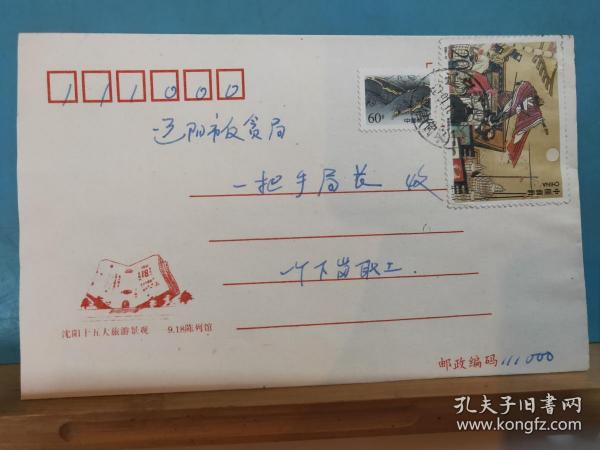 111000
辽阳市反贪局
一把手局长 收
一个下岗职工.
沈阳十五大旅游景观 9.18陈列馆
邮政编码 111000
60分
中国邮政
CHINA
孔夫子旧书网
www.kongfz.com